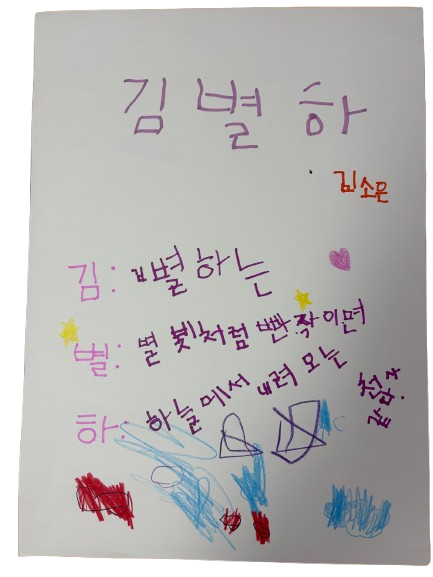 김 별 하
김소은
김: 별하는
별: 별 빛처럼 빤짝이면
하: 하늘에서 내려 오는